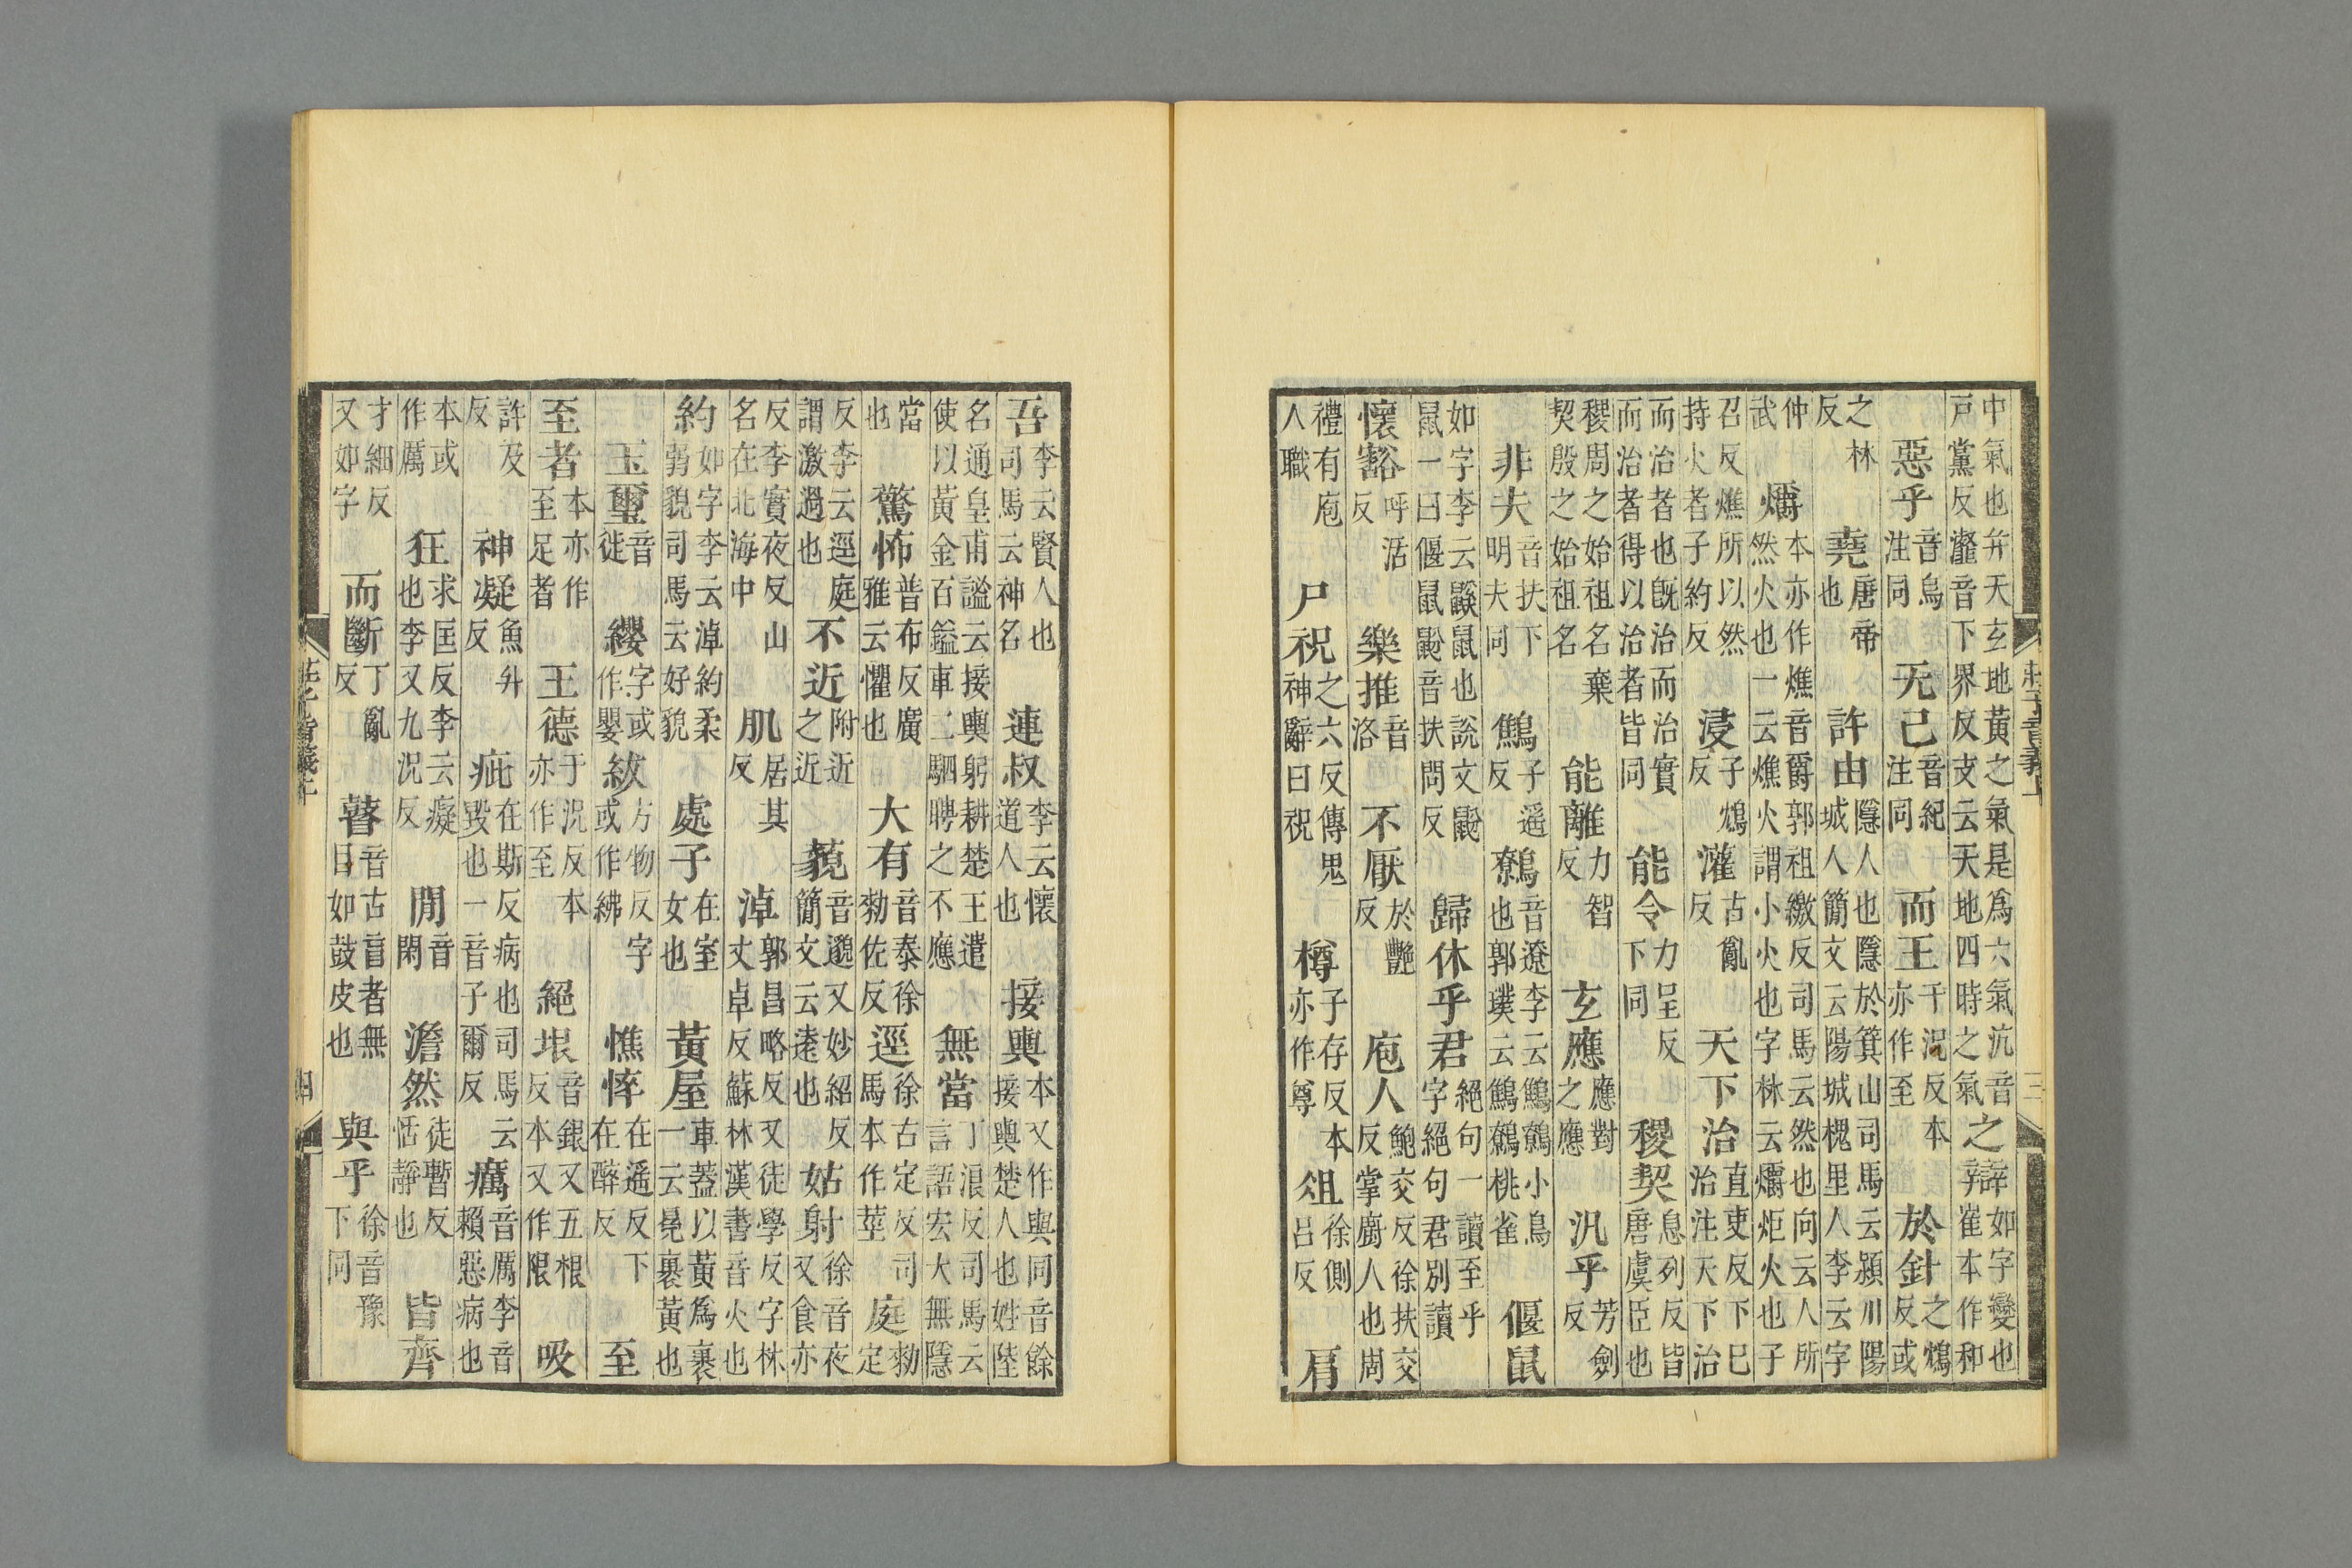 莊子音義上 三
中氣也并天玄地黃之氣是爲六氣沆音戸黨反瀣音下界反支云天地四時之氣之辯如字變也崔本作和
惡乎音烏注同无己音紀注同而王于況反本亦作至於針之鴆反或
之林反堯唐帝也許由隱人也隱於箕山司馬云潁川陽城人簡文云陽城槐里人李云字
仲武爝本亦作燋音爵郭祖繳反司馬云然也向云人所然火也一云燋火謂小火也字林云爝炬火也子
召反燋所以然持火者子約反浸子鴆反灌古亂反天下治直吏反下已治注天下治
而治者也既治而治實而治者得以治者皆同能令力呈反下同稷契息列反皆唐虞臣也
稷周之始祖名棄契殷之始祖名能離力智反玄應應對之應汎乎芳劍反
非夫音扶下明夫同鷦子遥反鷯音遼李云鷦鷯小鳥也郭璞云鷦鷯桃雀偃鼠
如字李云鼷鼠也說文鼢鼠一曰偃鼠鼢音扶問反歸休乎君絕句一讀至乎字絕句君別讀
懷豁呼活反樂推音洛不厭於豔反庖人鮑交反徐扶交反掌廚人也周
禮有庖人職尸祝之六反傳鬼神辭曰祝樽子存反本亦作尊俎徐側呂反肩
吾李云賢人也司馬云神名連叔李云懷道人也接輿本又作與同音餘接輿楚人也姓陸
名通皇甫謐云接輿躬耕楚王遣使以黃金百鎰車二駟聘之不應無當丁浪反司馬云言語宏大無隱
當也驚怖普布反廣雅云懼也大有音泰徐勑佐反逕徐古定反司馬本作莖庭勑定
反李云逕庭謂激過也不近附近之近藐音邈又妙紹反簡文云遠也姑射徐音夜又食亦
反李實夜反山名在北海中肌居其反淖郭昌略反又徒學反字林丈卓反蘇林漢書音火也
約如字李云淖約柔弱貌司馬云好貌處子在室女也黃屋車蓋以黃爲裏一云冕裏黃也
玉璽音徙纓字或作嬰紱方物反字或作紼憔悴在遥反下在醉反至
至者本亦作至足者王德于況反本亦作至絕垠音銀又五根反本又作限吸
許及反神凝魚升反疵在斯反病也司馬云毀也一音子爾反癘音厲李音賴惡病也
本或作厲狂求匡反李云癡也李又九況反閒音閑澹然徒暫反恬靜也皆齊
才細反又如字而斷丁亂反瞽音古盲者無目如鼓皮也與乎徐音豫下同
莊子音義上 四